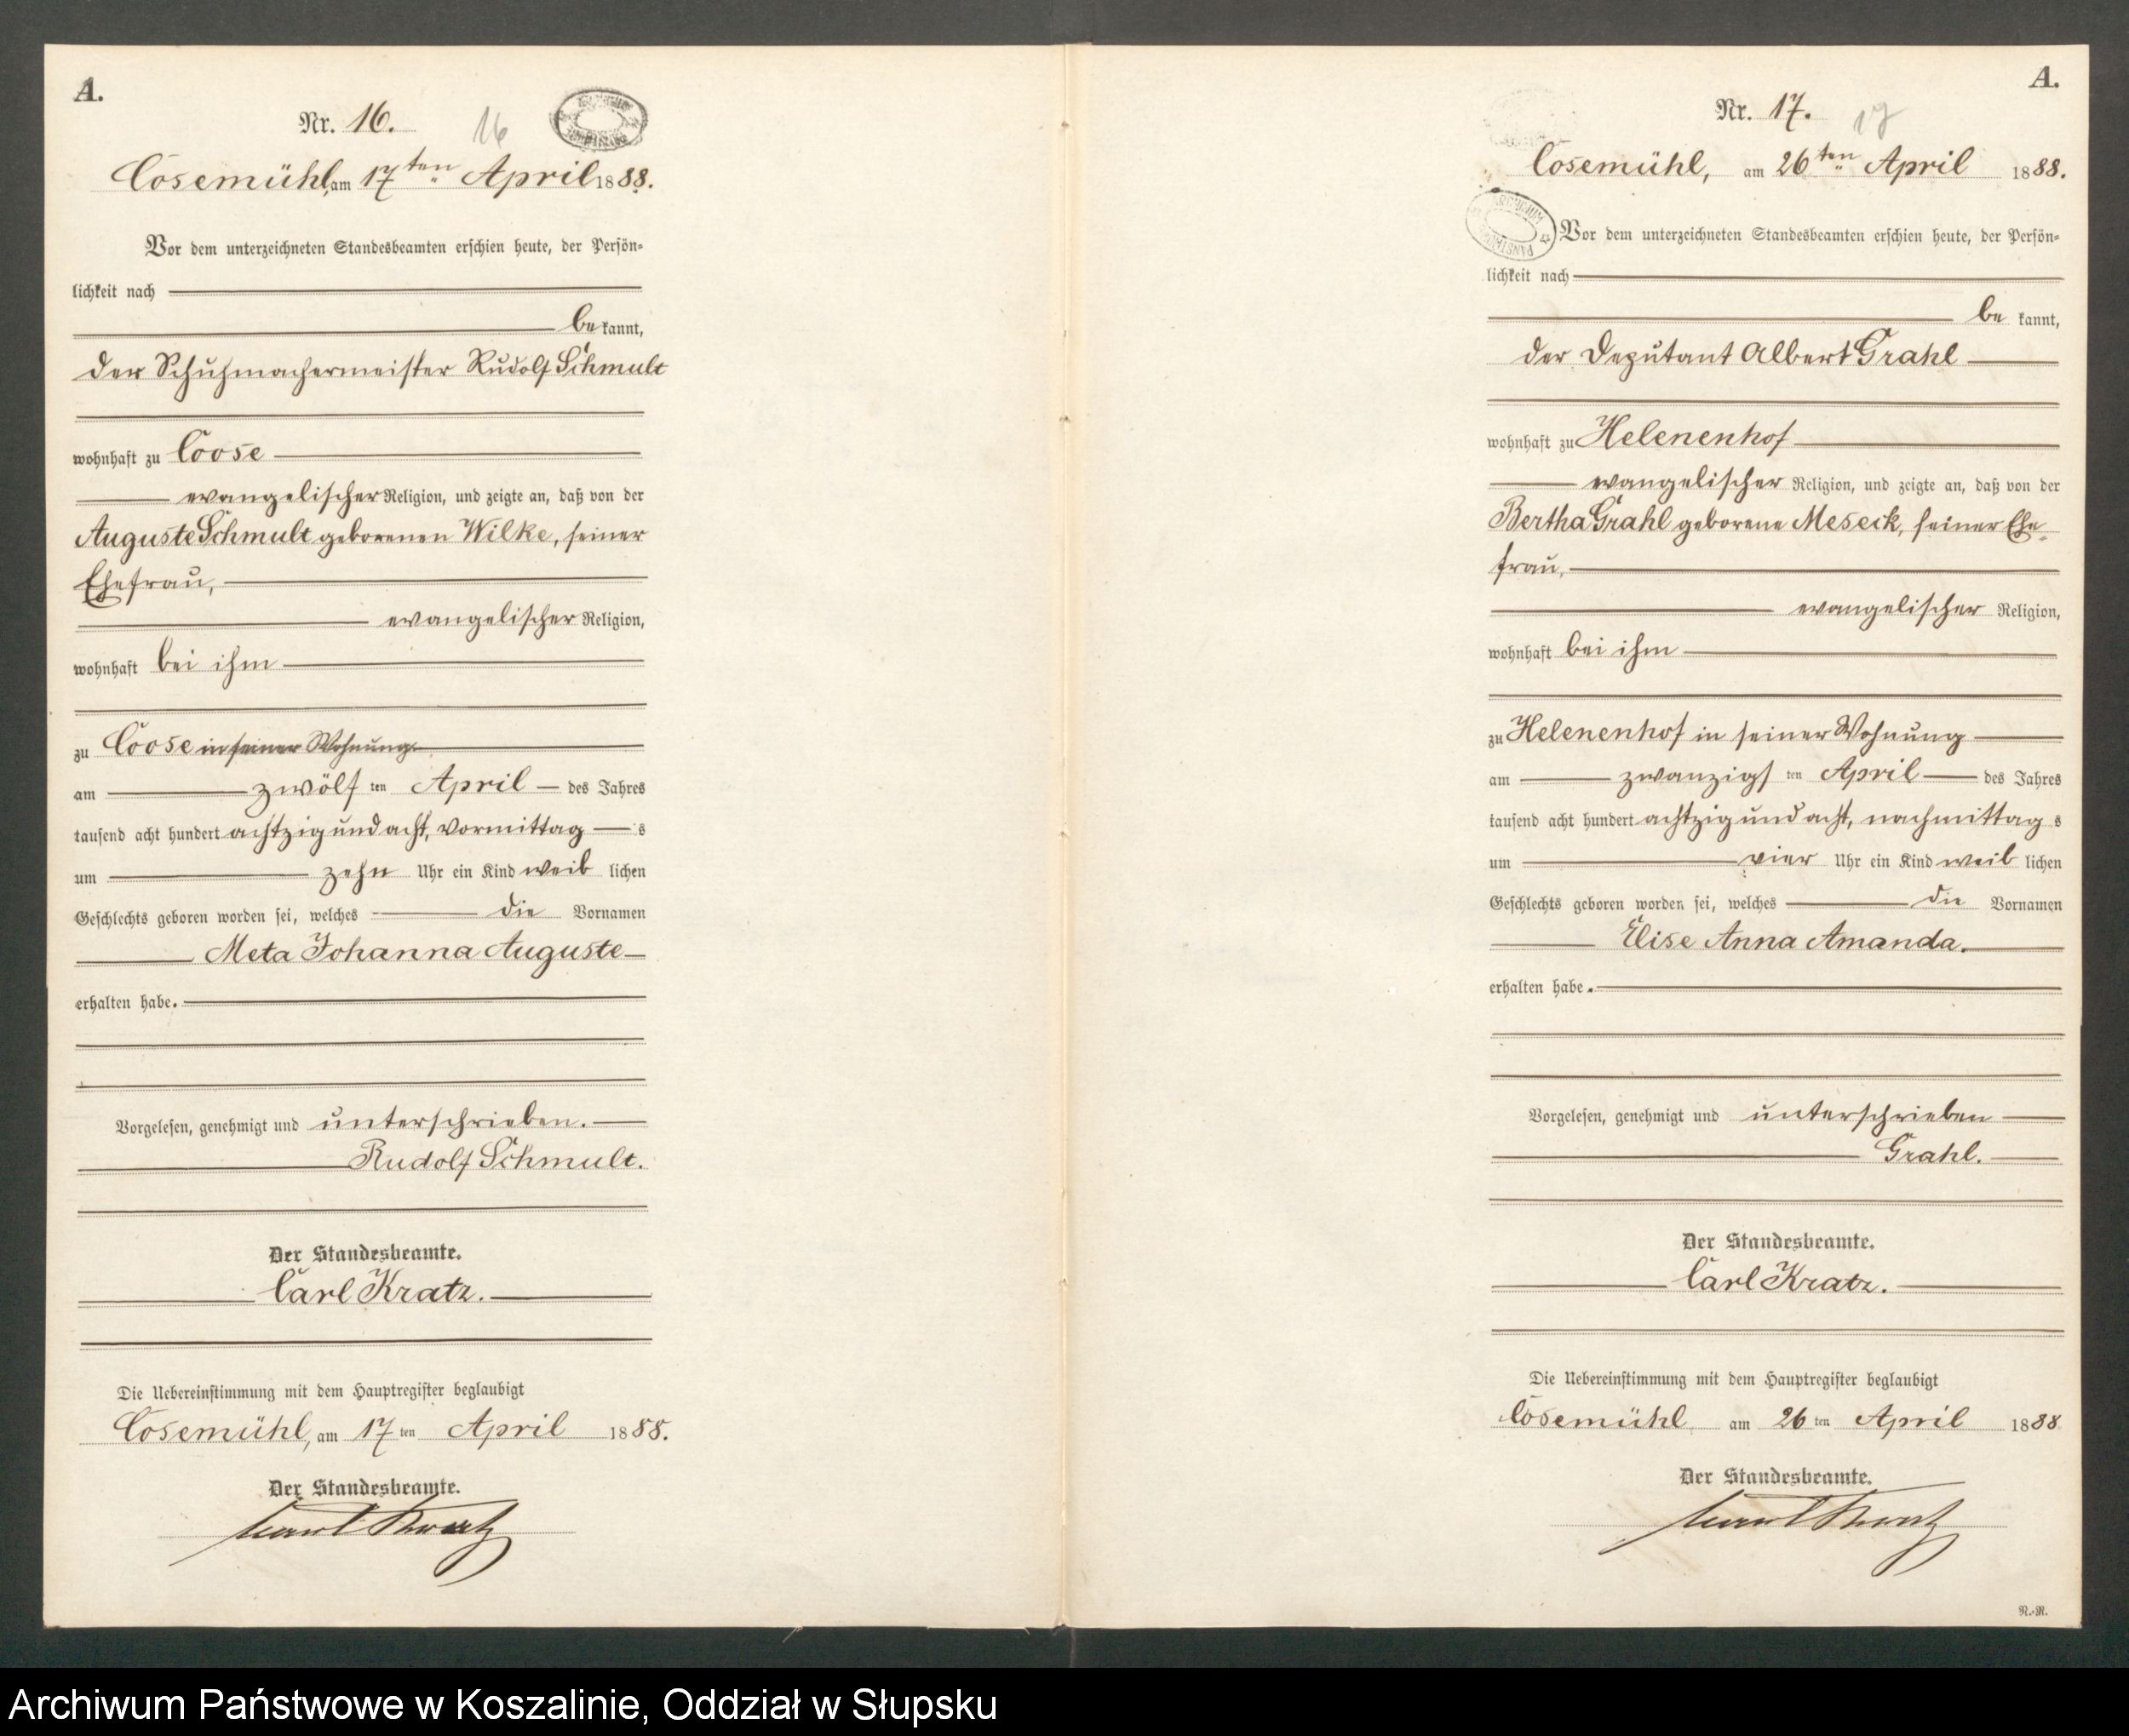 A.
Nr. 16. 16
Cosemühl, am 17ten April 1888.
Vor dem unterzeichneten Standesbeamten erschien heute, der Persön=
lichkeit nach
bekannt,
der Schuhmachermeister Rudolf Schmult
wohnhaft zu Coose
evangelischer Religion, und zeigte an, daß von der
Auguste Schmult geborenen Wilke, seiner
Ehefrau,
evangelischer Religion,
wohnhaft bei ihm
zu Coose in seiner Wohnung
am zwölf ten April des Jahres
tausend acht hundert achtzig und acht, vormittag s
um zehn Uhr ein Kind weib lichen
Geschlechts geboren worden sei, welches die Vornamen
Meta Johanna Auguste
erhalten habe.
Vorgelesen, genehmigt und unterschrieben.
Rudolf Schmult.
Der Standesbeamte.
Carl Kratz.
Die Uebereinstimmung mit dem Hauptregister beglaubigt
Cosemühl, am 17 ten April 1888.
Der Standesbeamte.
Carl Kratz
A.
Nr. 17. 17
Cosemühl, am 26ten April 1888.
Vor dem unterzeichneten Standesbeamten erschien heute, der Persön=
lichkeit nach
be kannt,
der Deputant Albert Grahl
wohnhaft zu Helenenhof
evangelischer Religion, und zeigte an, daß von der
Bertha Grahl geborene Meseck, seiner Ehe=
frau,
evangelischer Religion,
wohnhaft bei ihm
zu Helenenhof in seiner Wohnung
am zwanzigs ten April des Jahres
tausend acht hundert achtzig und acht, nachmittag s
um vier Uhr ein Kind weib lichen
Geschlechts geboren worden sei, welches die Vornamen
Elise Anna Amanda.
erhalten habe.
Vorgelesen, genehmigt und unterschrieben
Grahl.
Der Standesbeamte.
Carl Kratz.
Die Uebereinstimmung mit dem Hauptregister beglaubigt
Cosemühl am 26 ten April 1888
Der Standesbeamte.
Carl Kratz
N.-R.
Archiwum Państwowe w Koszalinie, Oddział w Słupsku